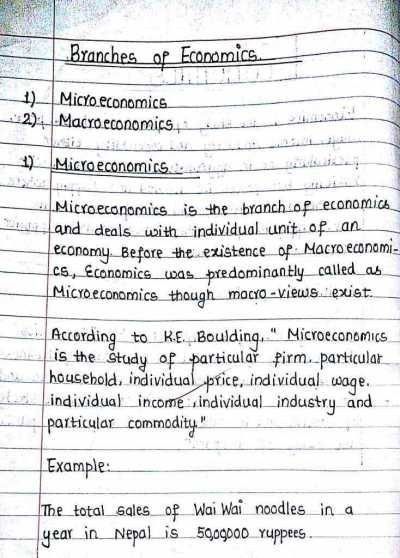 Branches of Economics.
1) Microeconomics
2) Macroeconomics
1) Microeconomics
Microeconomics is the branch of economics
and deals with individual unit of an
economy. Before the existence of Macroeconomi-
cs, Economics was predominantly called as
Microeconomics though macro-views exist.
According to K.E. Boulding, " Microeconomics
is the study of particular firm. particular
household, individual price, individual wage.
individual income, individual industry and
particular commodity"
Example:
The total sales of Wai Wai noodles in a
year in Nepal is 50,00,000 ruppees.